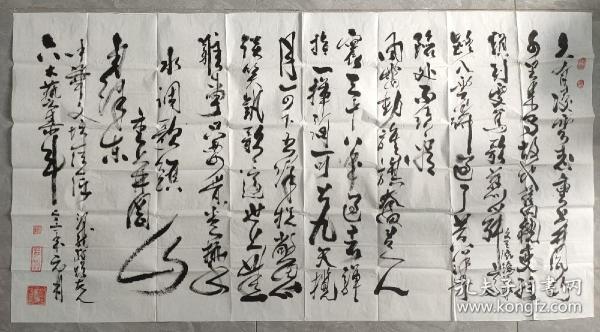 久有凌云志重上井冈山
千里来寻故地旧貌变新
颜到处莺歌燕舞更有潺潺流水高
路入云端过了黄洋界
险处不须看
风雷动旌旗奋是人
寰三十八年过去弹
指一挥间可上九天揽
月可下五洋捉鳖
谈笑凯歌还世上无
难事只要肯登攀
水调歌头
重上井冈山
毛泽东